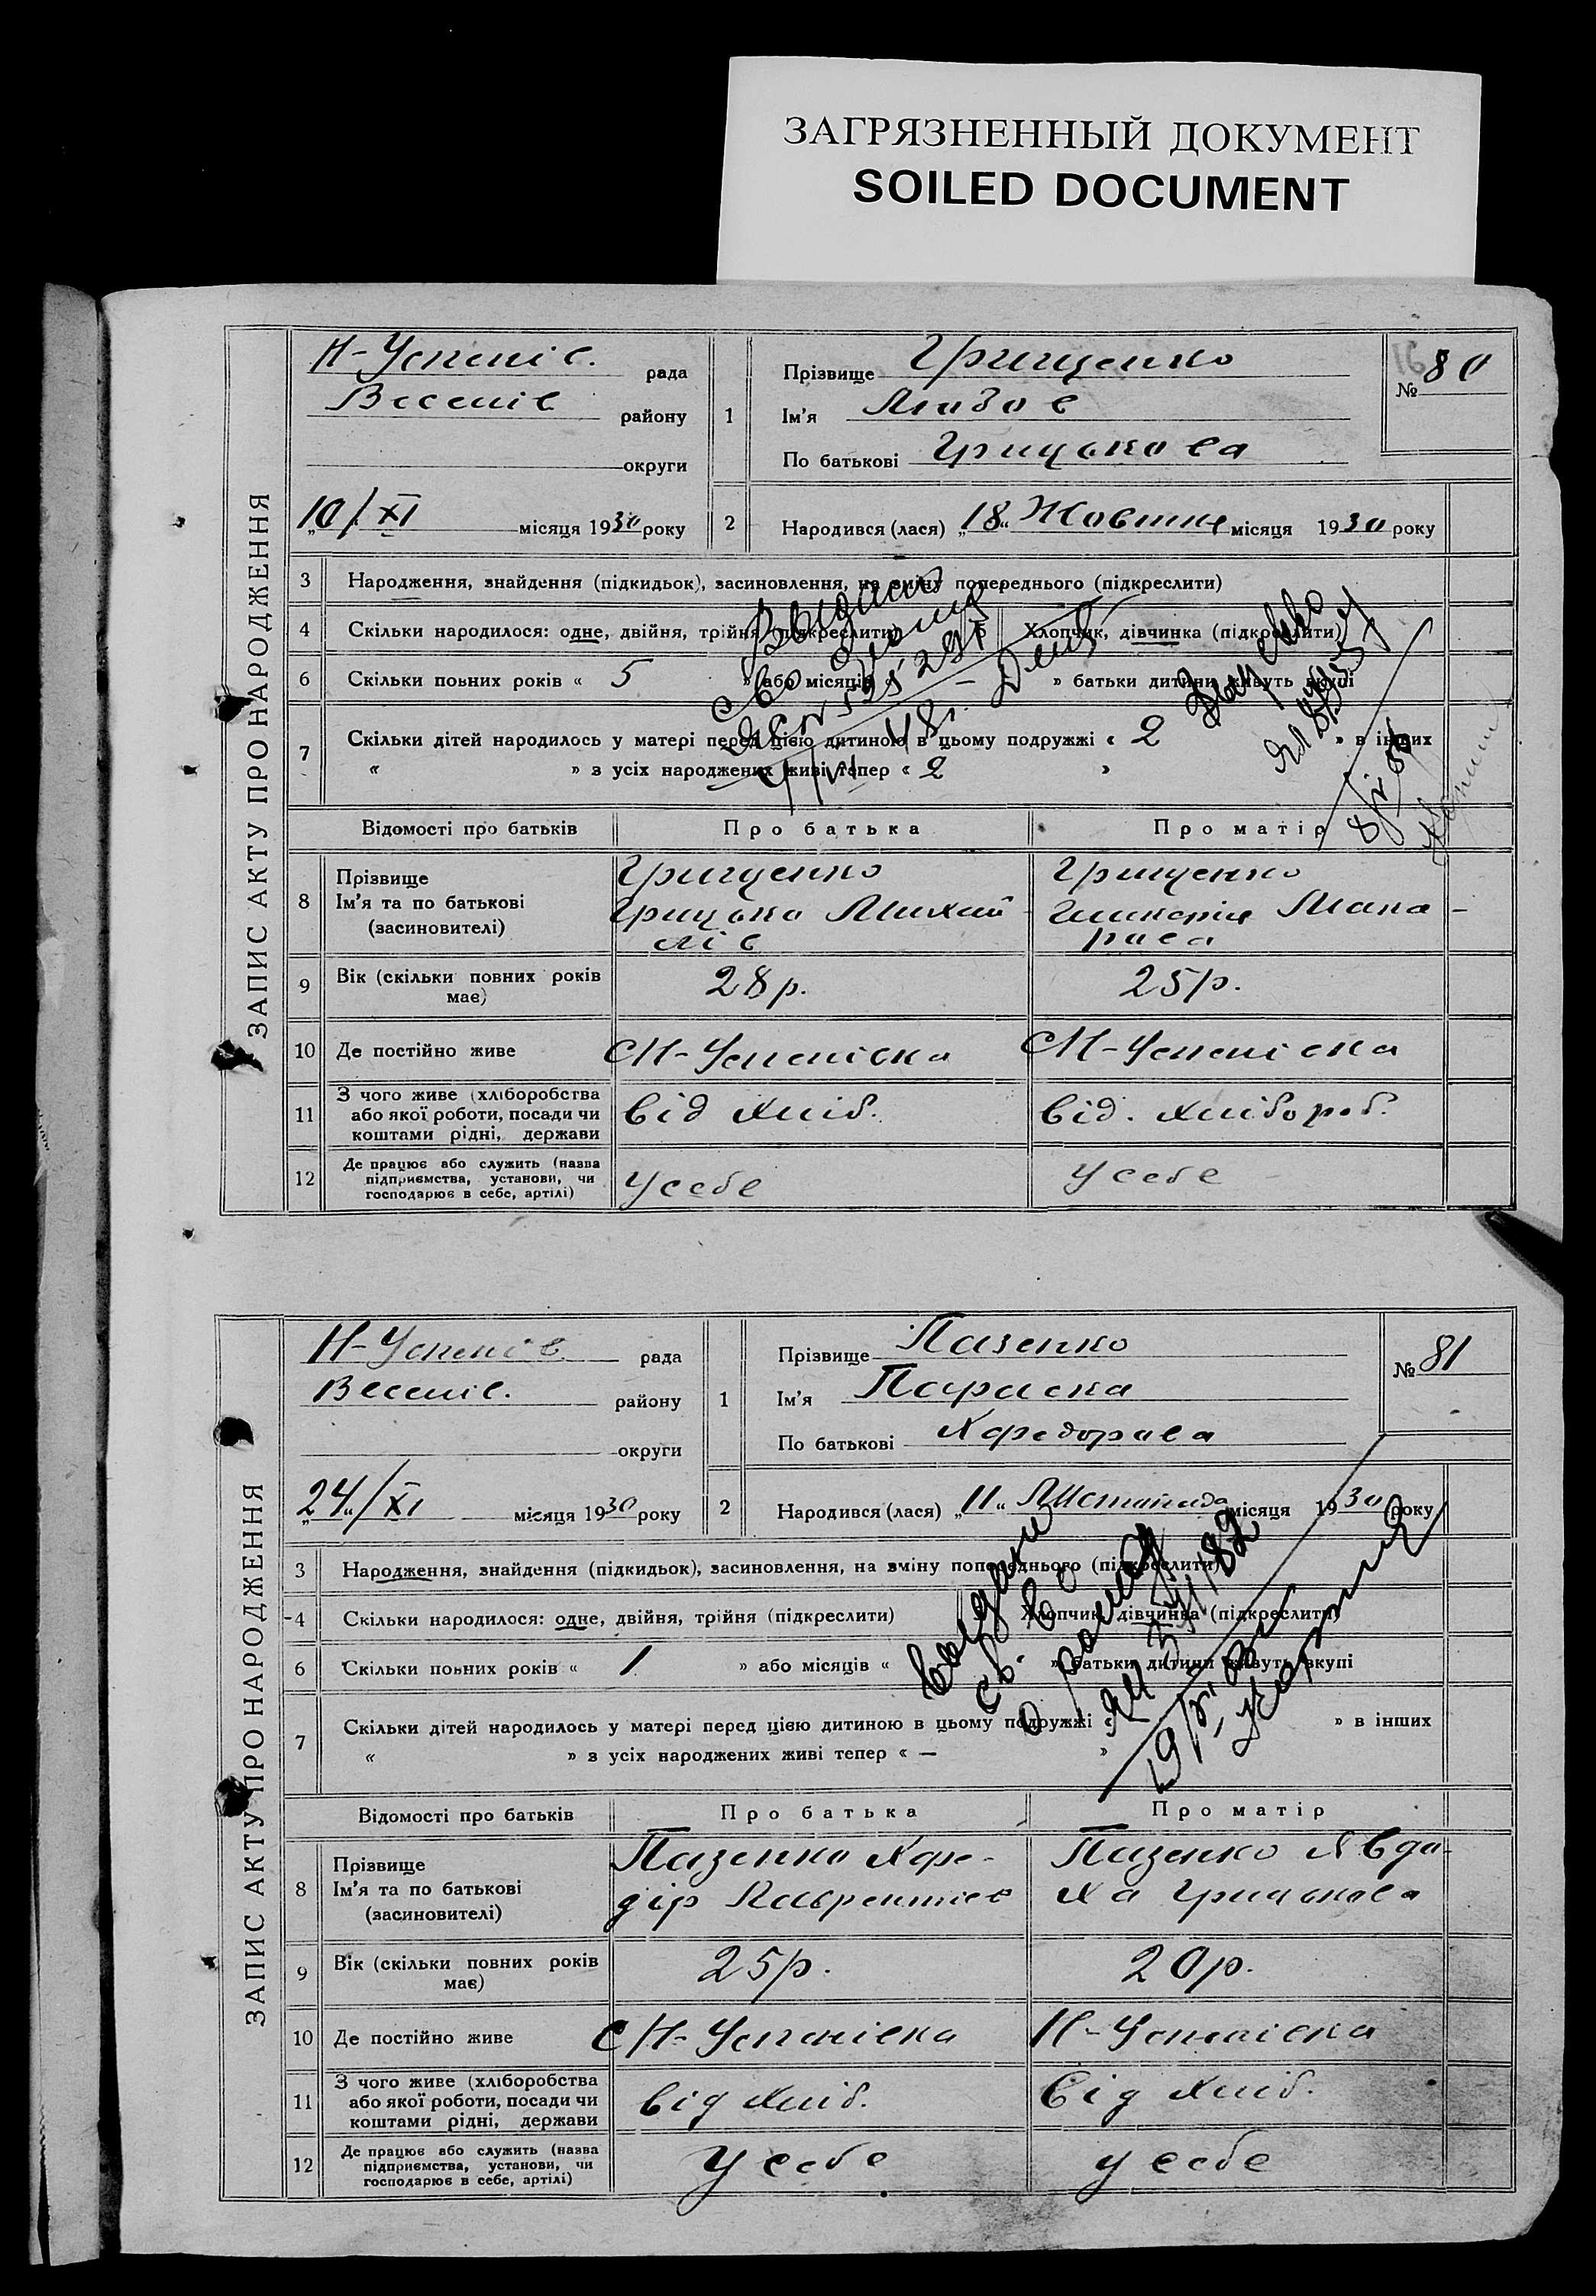 ЗАГРЯЗНЕННЫЙ ДОКУМЕНТ
SOILED DOCUMENT
ЗАПИС АКТУ ПРО НАРОДЖЕННЯ
Н-Успенів. рада
Веселів району
округи
„10/XI місяця 1930 року
1
Прізвище Грищенко
Ім'я Любов
По батькові Грицькова
№ 80
16
2 Народився (лася) „18“ Жовтня місяця 1930 року
3 Народження, знайдення (підкидьок), засиновлення, на зміну попереднього (підкреслити)
4 Скільки народилося: одне, двійня, трійня (підкреслити) 5 Хлопчик, дівчинка (підкреслити)
6 Скільки повних років « 5 » або місяців « — » батьки дитини живуть вкупі
7 Скільки дітей народилось у матері перед цією дитиною в цьому подружжі « 2 » в інших
« » з усіх народжених живі тепер « 2 »
Відомості про батьків Про батька Про матір
8 Прізвище Ім'я та по батькові (засиновителі)
Грищенко
Грицько Михай
лів
Грищенко
Мака-
рова
9 Вік (скільки повних років має) 28 р. 25 р.
10 Де постійно живе СН-Успенівка СН-Успенівка
11 З чого живе (хліборобства або якої роботи, посади чи коштами рідні, держави від хліб. від. хлібороб.
12 Де працює або служить (назва підприємства, установи, чи господарює в себе, артілі) у себе у себе
ЗАПИС АКТУ ПРО НАРОДЖЕННЯ
Н-Успенів рада
Веселів. району
округи
„24“/XI місяця 1930 року
1
Прізвище Пазенко
Ім'я Параска
По батькові Хфедорова
№ 81
2 Народився (лася) „11“ Листопада місяця 1930 року
3 Народження, знайдення (підкидьок), засиновлення, на зміну попереднього (підкреслити)
4 Скільки народилося: одне, двійня, трійня (підкреслити) Хлопчик, дівчинка (підкреслити)
6 Скільки повних років « 1 » або місяців « » батьки дитини живуть вкупі
7 Скільки дітей народилось у матері перед цією дитиною в цьому подружжі « — » в інших
« » з усіх народжених живі тепер « — »
Відомості про батьків Про батька Про матір
8 Прізвище Ім'я та по батькові (засиновителі)
Пазенко Хфе-
дір Лаврентієв
Пазенко Явдо-
ха Грицькова
9 Вік (скільки повних років має) 25 р. 20 р.
10 Де постійно живе С Н-Успенівка Н-Успенівка
11 З чого живе (хліборобства або якої роботи, посади чи коштами рідні, держави від хліб. від хліб.
12 Де працює або служить (назва підприємства, установи, чи господарює в себе, артілі) у себе у себе